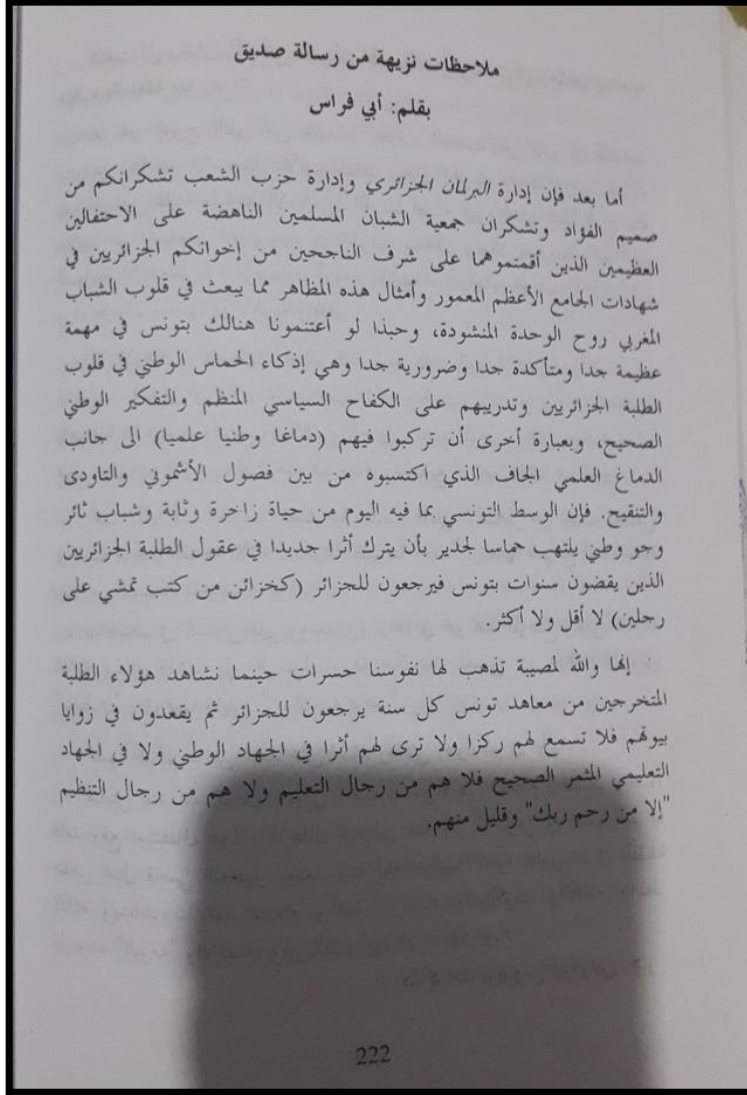 ملاحظات نزيهة من رسالة صديق
بقلم: أبي فراس
أما بعد فإن إدارة البرلمان الجزائري وإدارة حزب الشعب تشكرانكم من
صميم الفؤاد وتشكران جمعية الشبان المسلمين الناهضة على الاحتفالين
العظيمين الذين أقمتموهما على شرف الناجحين من إخوانكم الجزائريين في
شهادات الجامع الأعظم المعمور وأمثال هذه المظاهر مما يبعث في قلوب الشباب
المغربي روح الوحدة المنشودة، وحبذا لو أعتنمونا هنالك بتونس في مهمة
عظيمة جدا ومتأكدة جدا وضرورية جدا وهي إذكاء الحماس الوطني في قلوب
الطلبة الجزائريين وتدريبهم على الكفاح السياسي المنظم والتفكير الوطني
الصحيح، وبعبارة أخرى أن تركبوا فيهم (دماغا وطنيا علميا) الى جانب
الدماغ العلمي الجاف الذي اكتسبوه من بين فصول الأشموني والتاودى
والتنقيح. فإن الوسط التونسي بما فيه اليوم من حياة زاخرة وثابة وشباب ثائر
وجو وطني يلتهب حماسا لجدير بأن يترك أثرا جديدا في عقول الطلبة الجزائريين
الذين يقضون سنوات بتونس فيرجعون للجزائر (كخزائن من كتب تمشي على
رجلين) لا أقل ولا أكثر.
إنها والله لمصيبة تذهب لها نفوسنا حسرات حينما نشاهد هؤلاء الطلبة
المتخرجين من معاهد تونس كل سنة يرجعون للجزائر ثم يقعدون في زوايا
بيوتهم فلا تسمع لهم ركزا ولا ترى لهم أثرا في الجهاد الوطني ولا في الجهاد
التعليمي المثمر الصحيح فلا هم من رجال التعليم ولا هم من رجال التنظيم
"إلا من رحم ربك" وقليل منهم.
222